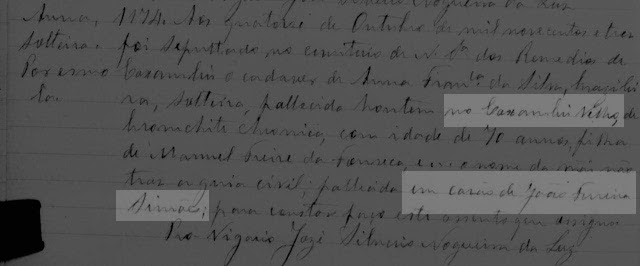 Anna, 1174. Aos quatorze de Outubro de mil novecentos e tres
solteira. foi sepultado, no cemiterio de N. Sra. dos Remedios de
Caxambú o cadaver de Anna Franca. da Silva, brazilei
ra, solteira, fallecida hontem no Caxambú Velho, de
bronchite chronica, com idade de 70 annos, filha
de Manoel Freire da Fonseca, e o nome da mãi não
traz a guia civil; fallecida em casa de João Ferreira
Simões; para constar faço este assento que assigno
Pro Vigario José Silverio Nogueira da Luz